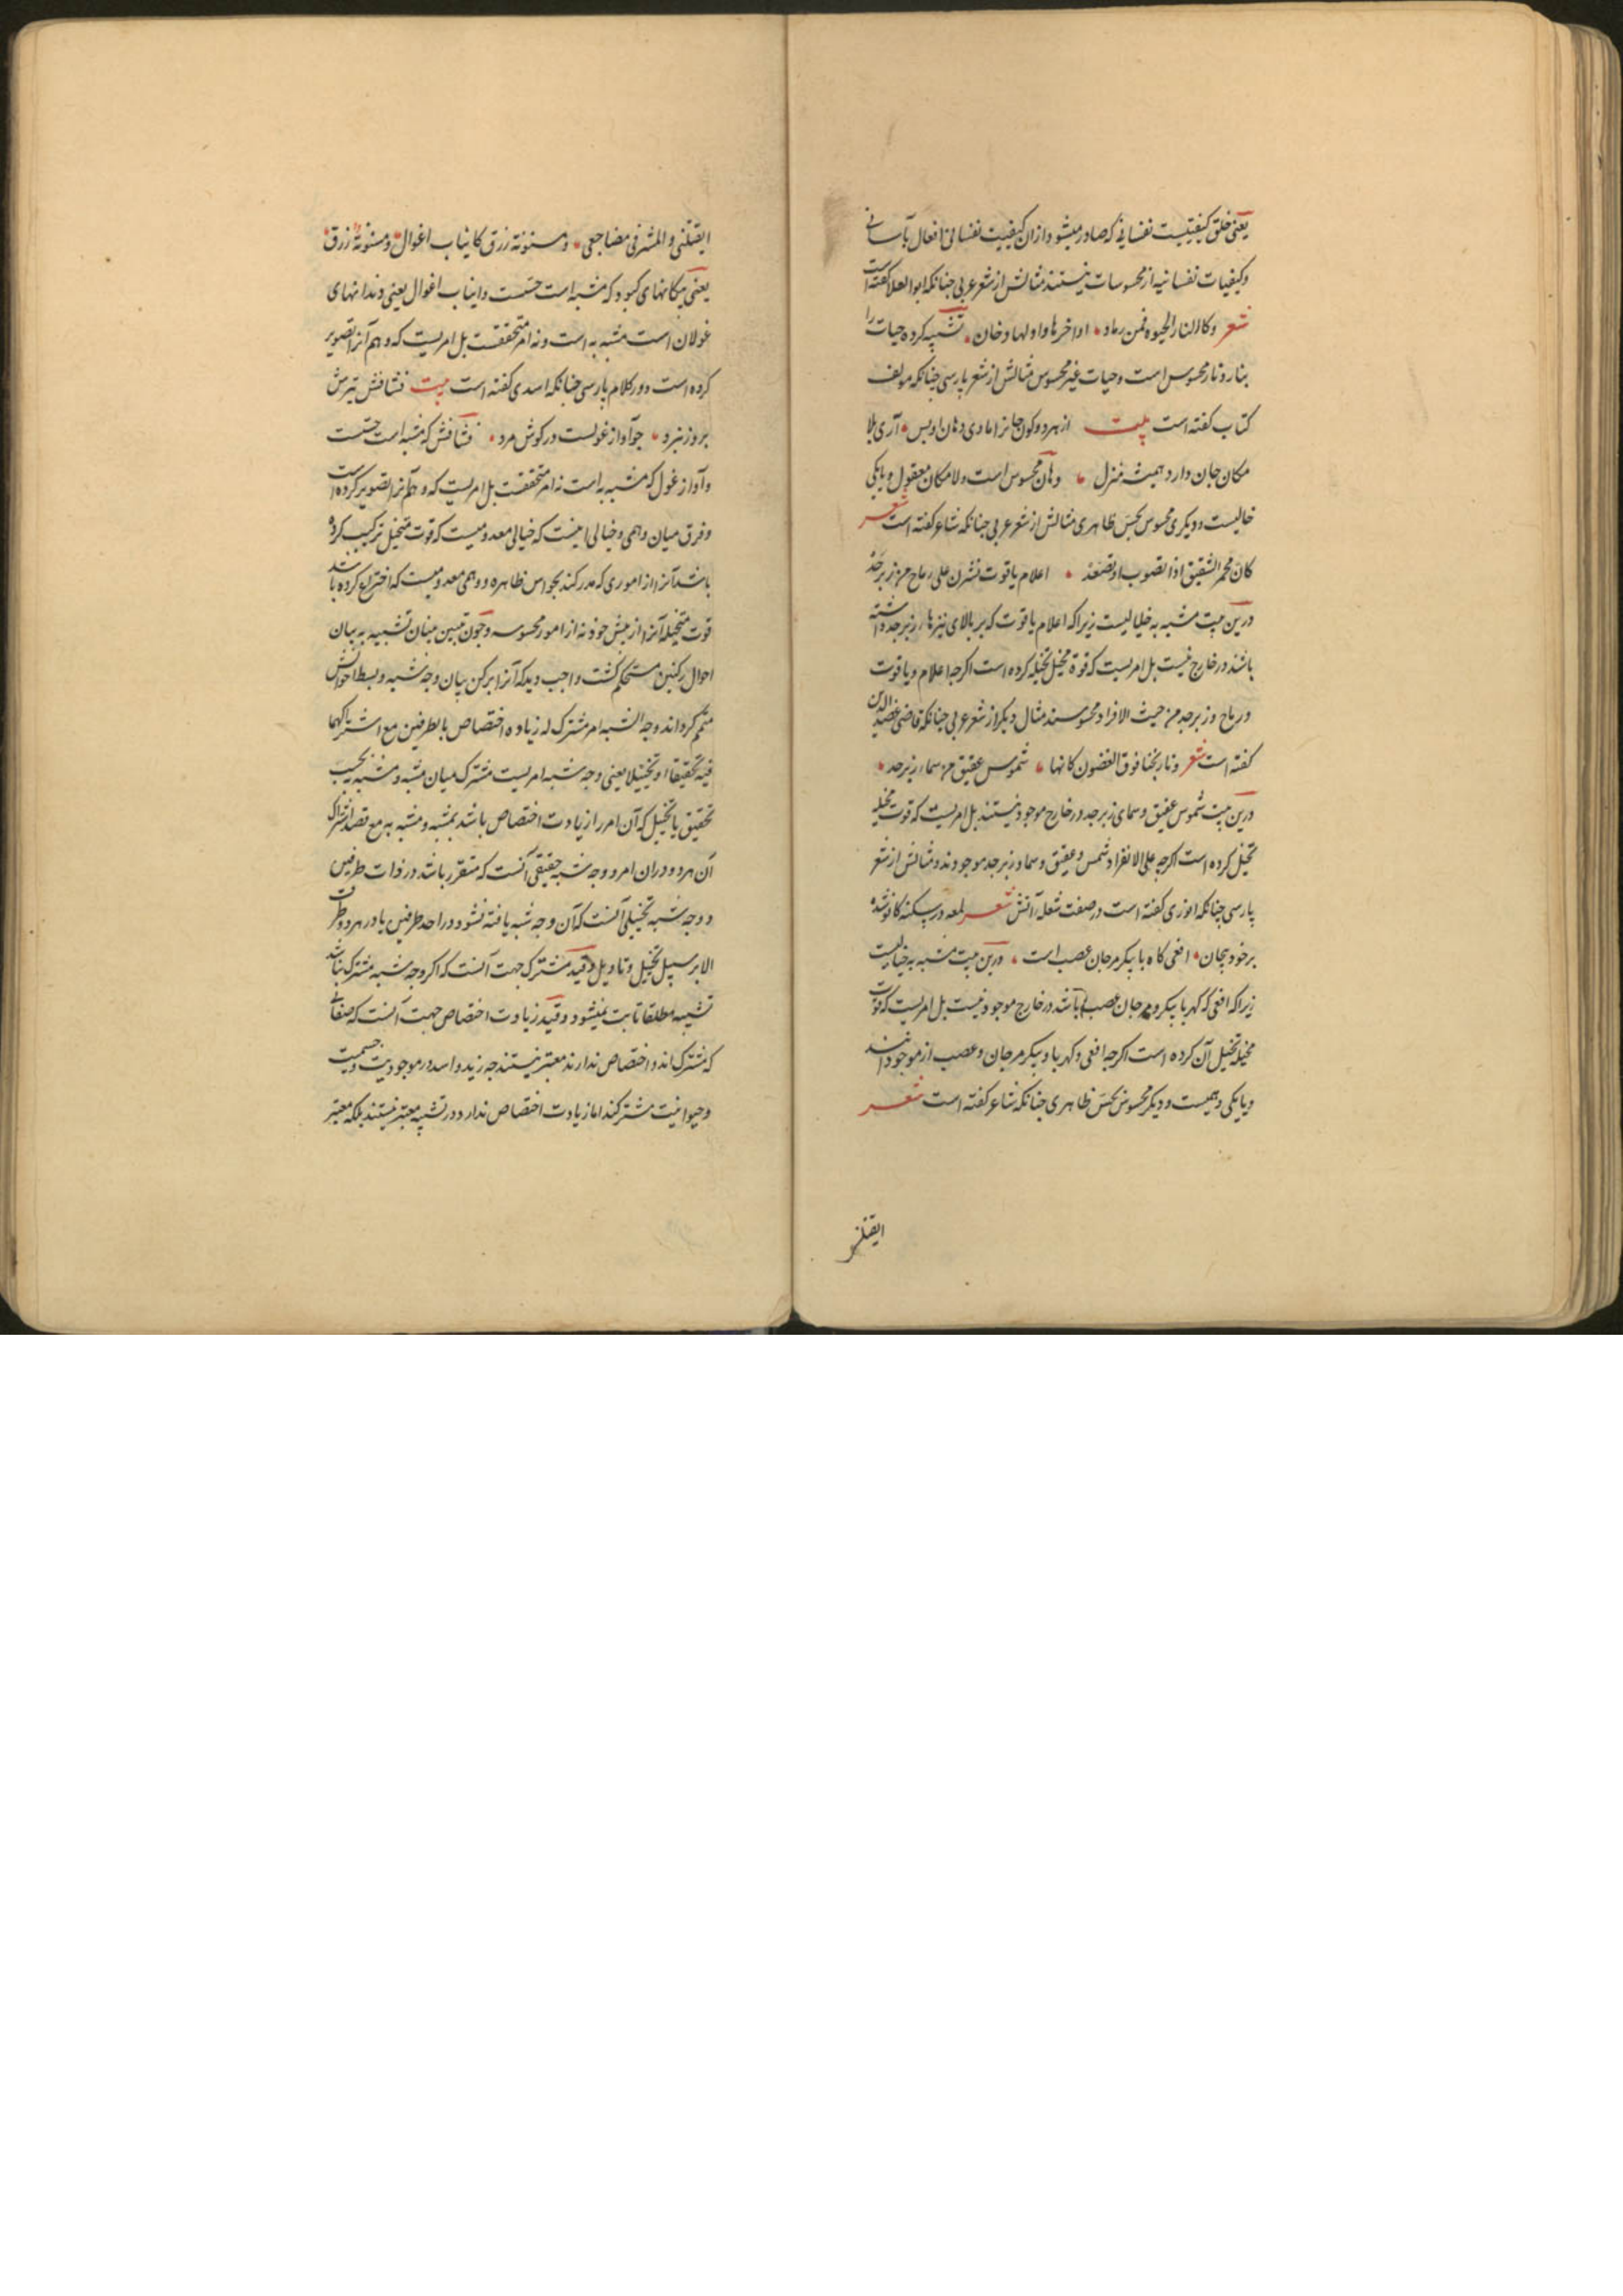 یعنی خلق کیفیتیست نفسانی که صادر میشود ازان کیفیت نفسانی افعال بآسانی
وکیفیات نفسانیه از محسوسات نیستند مثالش از شعر عربی جنانکه ابوالعلا کفته است
شعر وکالنار الحیوة فمن رماد اواخرها واولها دخان تشبیه کرده حیات را
بنار ونار محسوس است وحیات غیر محسوس مثالش از شعر پارسی جنانکه مولف
کتاب کفته است بیت از هر دو کون جانرا مادی دهان او بس آری بلا
مکان جان دارد همیشه منزل دهان محسوس است ولامکان معقول ویا یکی
خیالیست ودیکری محسوس بحس ظاهری مثالش از شعر عربی جنانکه شاعر کفته است شعر
کان محمر الشقیق اذا تصوب او تصعد اعلام یاقوت نشرن علی رماح من زبرجد
درین بیت مشبه به خیالیست زیرا که اعلام یاقوت که بر بالای نیزهاء زبرجد داشته
باشند در خارج نیست بل امریست که قوة مخیل تخیله کرده است اکرجه اعلام ویاقوت
ورماح وزبرجد من حیث الافراد محسوسند مثال دیکر از شعر عربی جنانکه قاضی عضدالدین
کفته است شعر ونارنجنا فوق الغصون کانها شموس عقیق من سماء زبرجد
درین بیت شموس عقیق وسمای زبرجد در خارج موجود نیستند بل امریست که قوت مخیله
تخیل کرده است اکرجه علی الانفراد شمس وعقیق وسما وزبرجد موجودند ومثالش از شعر
پارسی جنانکه انوری کفته است در صفت شعله آتش شعر لمعه در سکنه کانون شده
بر خود پیجان افعی کاه ربا پیکر مرجان عصب است درین بیت مشبه به خیالیست
زیرا که افعی که کهربا پیکر ومرجان عصب باشد در خارج موجود نیست بل امریست که قوت
مخیله تخیل آن کرده است اکرجه افعی وکهربا وپیکر مرجان وعصب از موجوداتند
ویا یکی وهمیست ودیکر محسوس بحس ظاهری جنانکه شاعر کفته است شعر
ایقتلنی
ایقتلنی والمشرفی مضاجعی ومسنونة زرق کانیاب اغوال ومسنونة زرق
یعنی پیکانهای کبود که مشبه است حسیست وانیاب اغوال یعنی دندانهای
غولان است مشبه به است ونه امر متحققست بل امریست که وهم آنرا تصویر
کرده است ودر کلام پارسی جنانکه اسدی کفته است بیت فشافش تیرش
بروز نبرد جو آواز غولست در کوش مرد فشافش که مشبه است حسیست
وآواز غول که مشبه به است نه امر متحققست بل امریست که وهم آنرا تصویر کرده است
وفرق میان وهمی وخیالی اینست که خیالی معدومیست که قوت متخیل ترکیب کرده
باشد آنرا از اموری که مدرکند بحواس ظاهره ووهمی معدومیست که اختراع کرده باشد
قوت متخیله آنرا از پیش خود نه از امور محسوسه وجون مبین بنیان تشبیه به بیان
احوال رکنین مستحکم کشت واجب دید که آنرا برکن بیان وجه شبه وبسط احوالش
متمم کرداند وجه الشبه امر مشترک له زیاده اختصاص بالطرفین مع اشتراکهما
فیه تحقیقا او تخییلا یعنی وجه شبه امریست مشترک میان مشبه ومشبه به بحسب
تحقیق یا تخیل که آن امر را زیادت اختصاص باشد بمشبه ومشبه به مع قصد اشتراک
آن هر دو دران امر ووجه شبه حقیقی آنست که متقرر باشد در ذات طرفین
ووجه شبه تخیلی آنست که آن وجه شبه یافته نشود در احد طرفین یا در هر دو طرف
الا بر سبیل تخیل وتاویل وقید مشترک جهت آنست که اکر وجه شبه مشترک نباشد
تشبیه مطلقا ثابت نمیشود وقید زیادت اختصاص جهت آنست که صفاتی
که مشترک اند واختصاص ندارند معتبر نیستند جه زید واسد در موجودیت وجسمیت
وحیوانیت مشترکند اما زیادت اختصاص ندارد ودر تشبیه معتبر نیستند بلکه معتبر